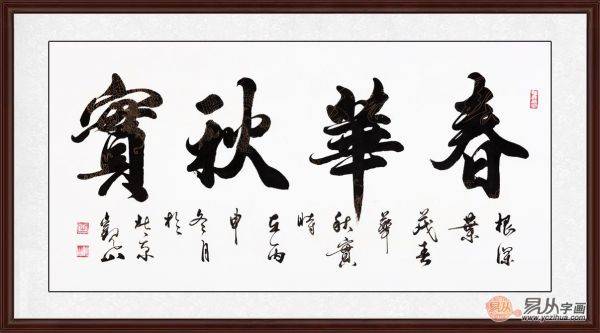 春華秋實
根深
葉
茂春
華
秋實
時
在丙
申
冬月
於
北京
易从字画
www.yczihua.com